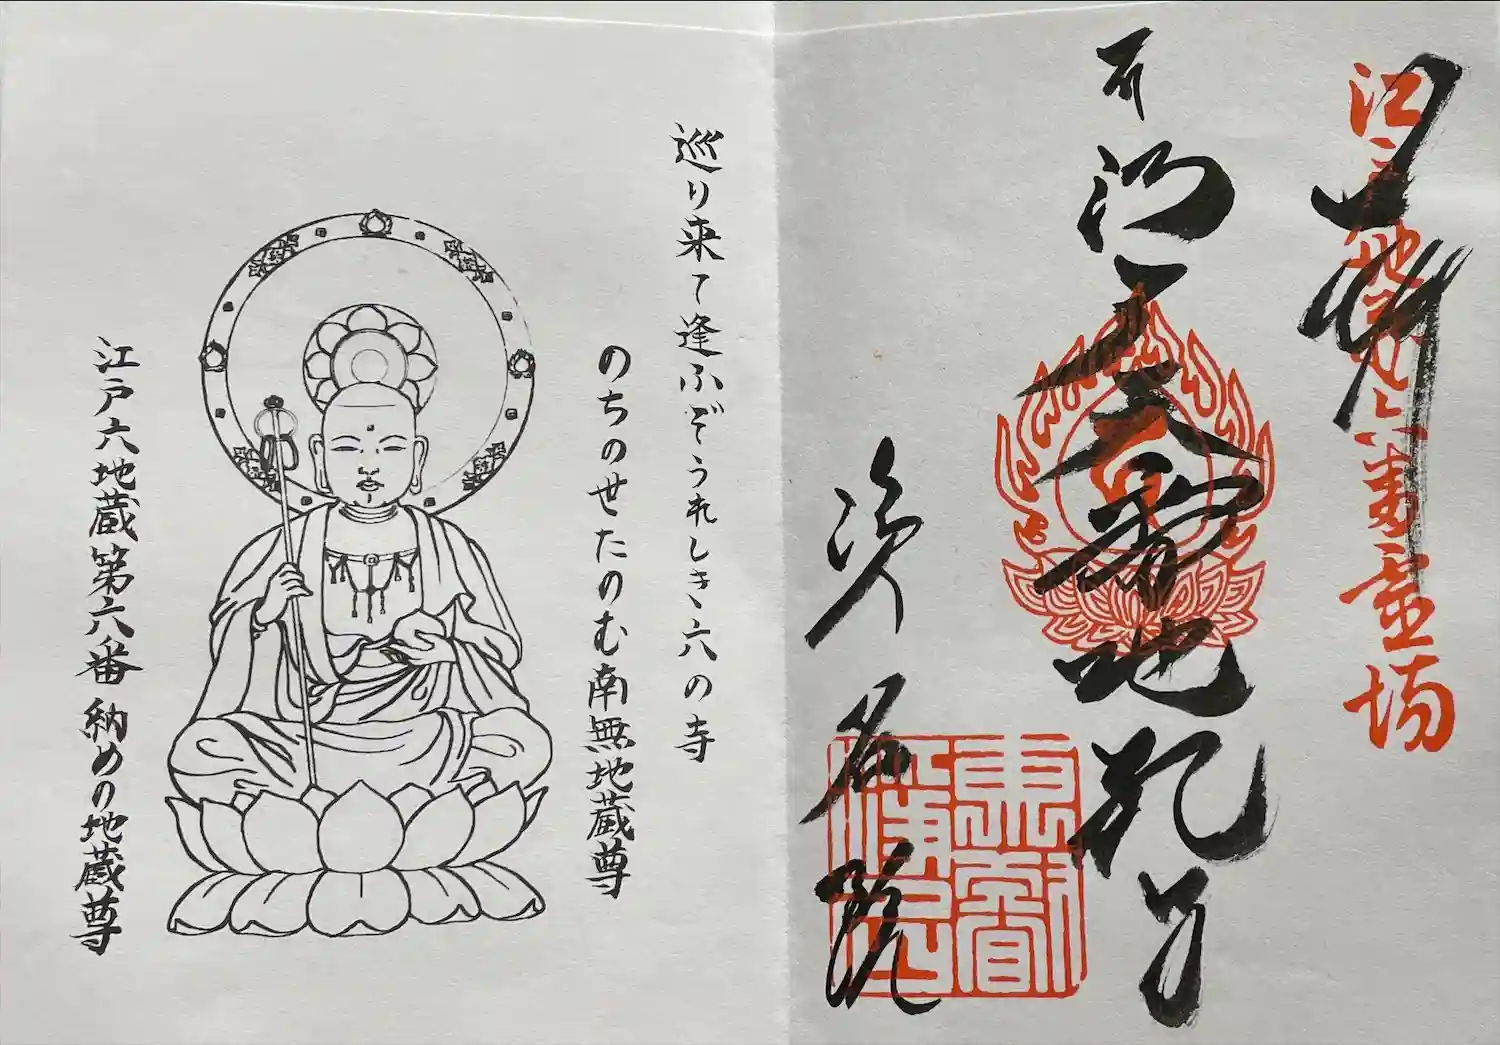 奉拝
江戸六地蔵第六番霊場
江戸六番地蔵尊
浄名院
巡り来て逢ふぞうれしき六の寺
のちのせたのむ南無地蔵尊
江戸六地蔵第六番納めの地蔵尊